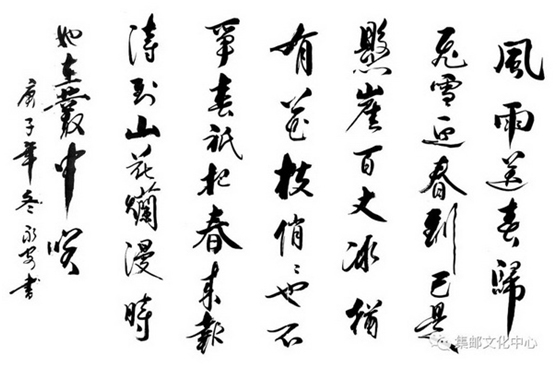 風雨送春歸
飛雪迎春到已是
懸崖百丈冰猶
有花枝俏〻也不
爭春祇把春來報
待到山花爛漫時
她在叢中笑
庚子年冬書
集邮文化中心